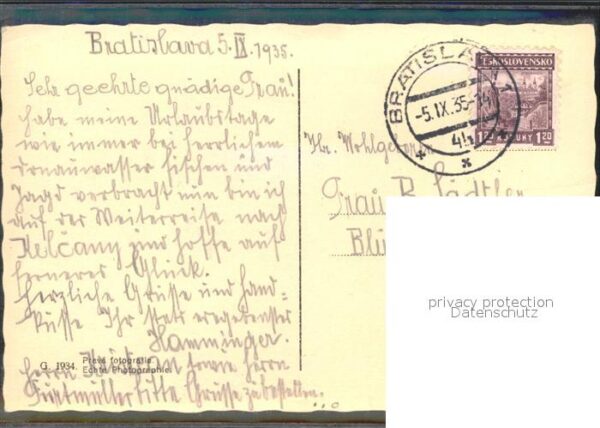 Bratislava 5.IX.1935.
Sehr geehrte gnädige Frau!
habe meine Urlaubstage
wie immer bei herrlichem
Donauwasser fischen und
Jagd verbracht nun bin ich
auf der Weiterreise nach
Kelčany und hoffe auf
ferneres Glück.
Herzliche Grüsse und Hand=
küsse Ihr stets ergebenster
Hamminger.
Herrn sowie Herrn
bitte Grüsse zu bestellen
G. 1934.
Pravá fotografie.
Echte Photographie.
BRATISLAVA 1
-5.IX.35-14
44
ČESKOSLOVENSKO
1.20 KORUNY 1.20
Ihr. Wohlgeboren
Frau B.
privacy protection
Datenschutz